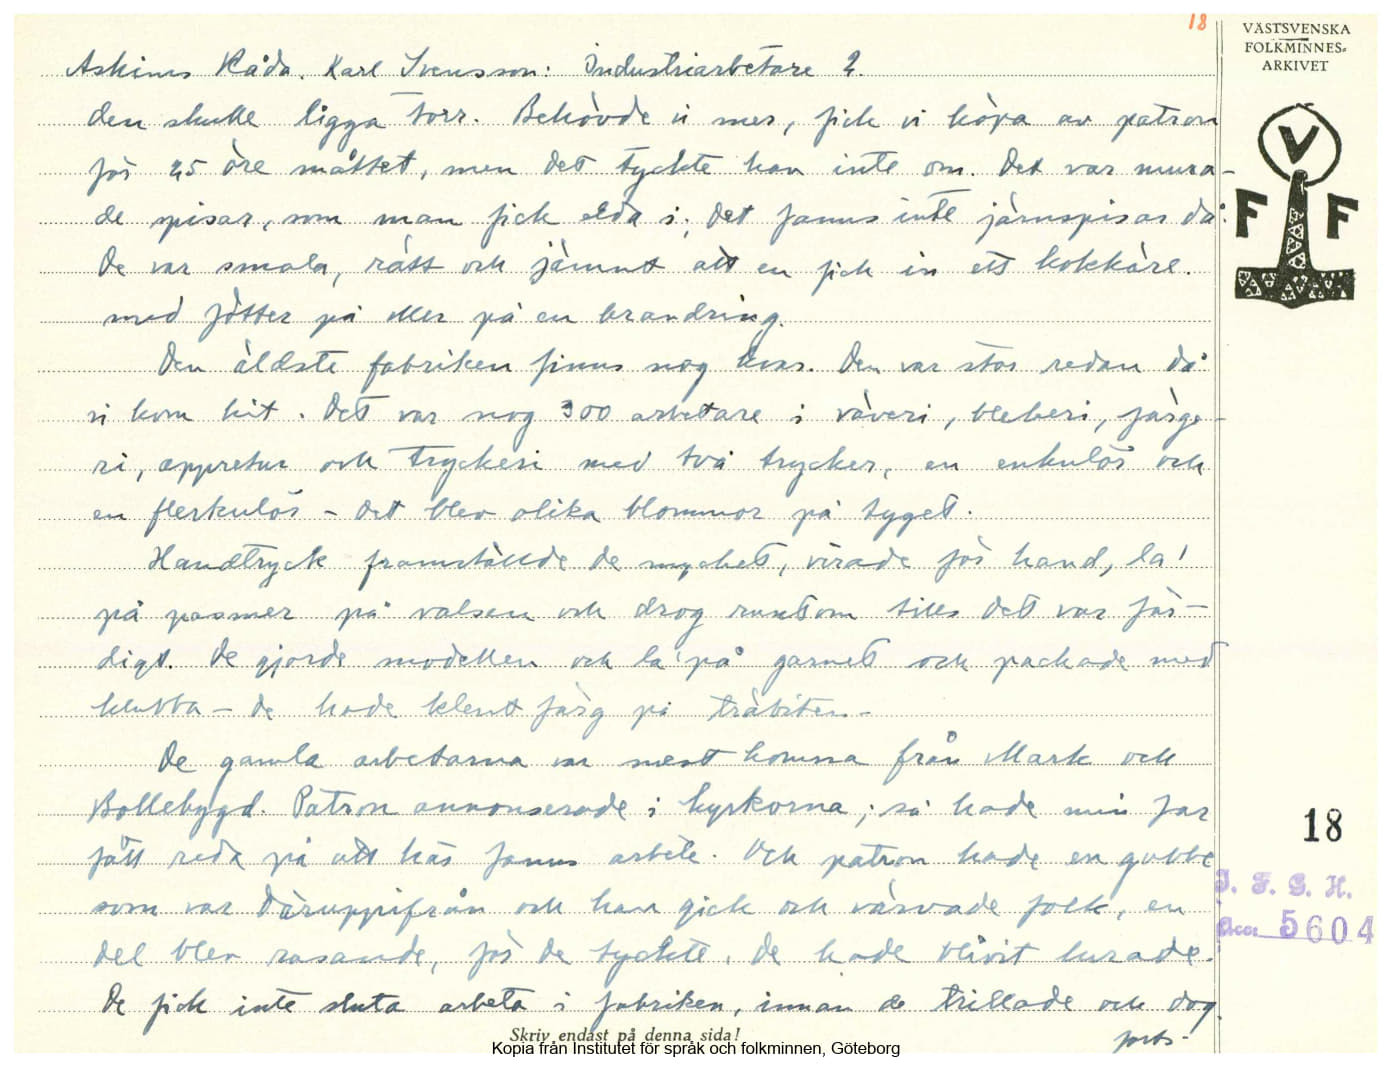 18
VÄSTSVENSKA
FOLKMINNES-
ARKIVET
V
F F
Askims Råda. Karl Svensson: Industriarbetare 2.
den skulle ligga torr. Behövde vi mer, fick vi köpa av patron
för 25 öre måttet, men det tyckte han inte om. Det var mura-
de spisar, som man fick elda i; det fanns inte järnspisar då.
De var smala, rätt och jämnt att en fick in ett kokkärl.
med fötter på eller på en brandring.
Den äldste fabriken finns nog kvar. Den var stor redan då
vi kom hit. Det var nog 300 arbetare i väveri, blekeri, färge-
ri, appretur och tryckeri med två trycker, en enkulör och
en flerkulör - det blev olika blommor på tyget.
Handtryck framställde de mychet, virade för hand, la'
på pasmer på valsen och drog runtom tills det var fär-
digt. De gjorde modellen och la' på garnet och packade med
klubba - de hade klent färg på träbiten -
De gamla arbetarna var mest komna från Mark och
Bollebygd. Patron annonserade i kyrkorna; så hade min far
fått reda på att här fanns arbete. Och patron hade en gubbe
som var däruppifrån och han gick och värvade folk, en
del blev rasande, för de tyckte, de hade blivit lurade.
De fick inte sluta arbeta i fabriken, innan de trillade och dog.
forts.
18
I. F. G. H.
Acc. 5604
Skriv endast på denna sida!
Kopia från Institutet för språk och folkminnen, Göteborg